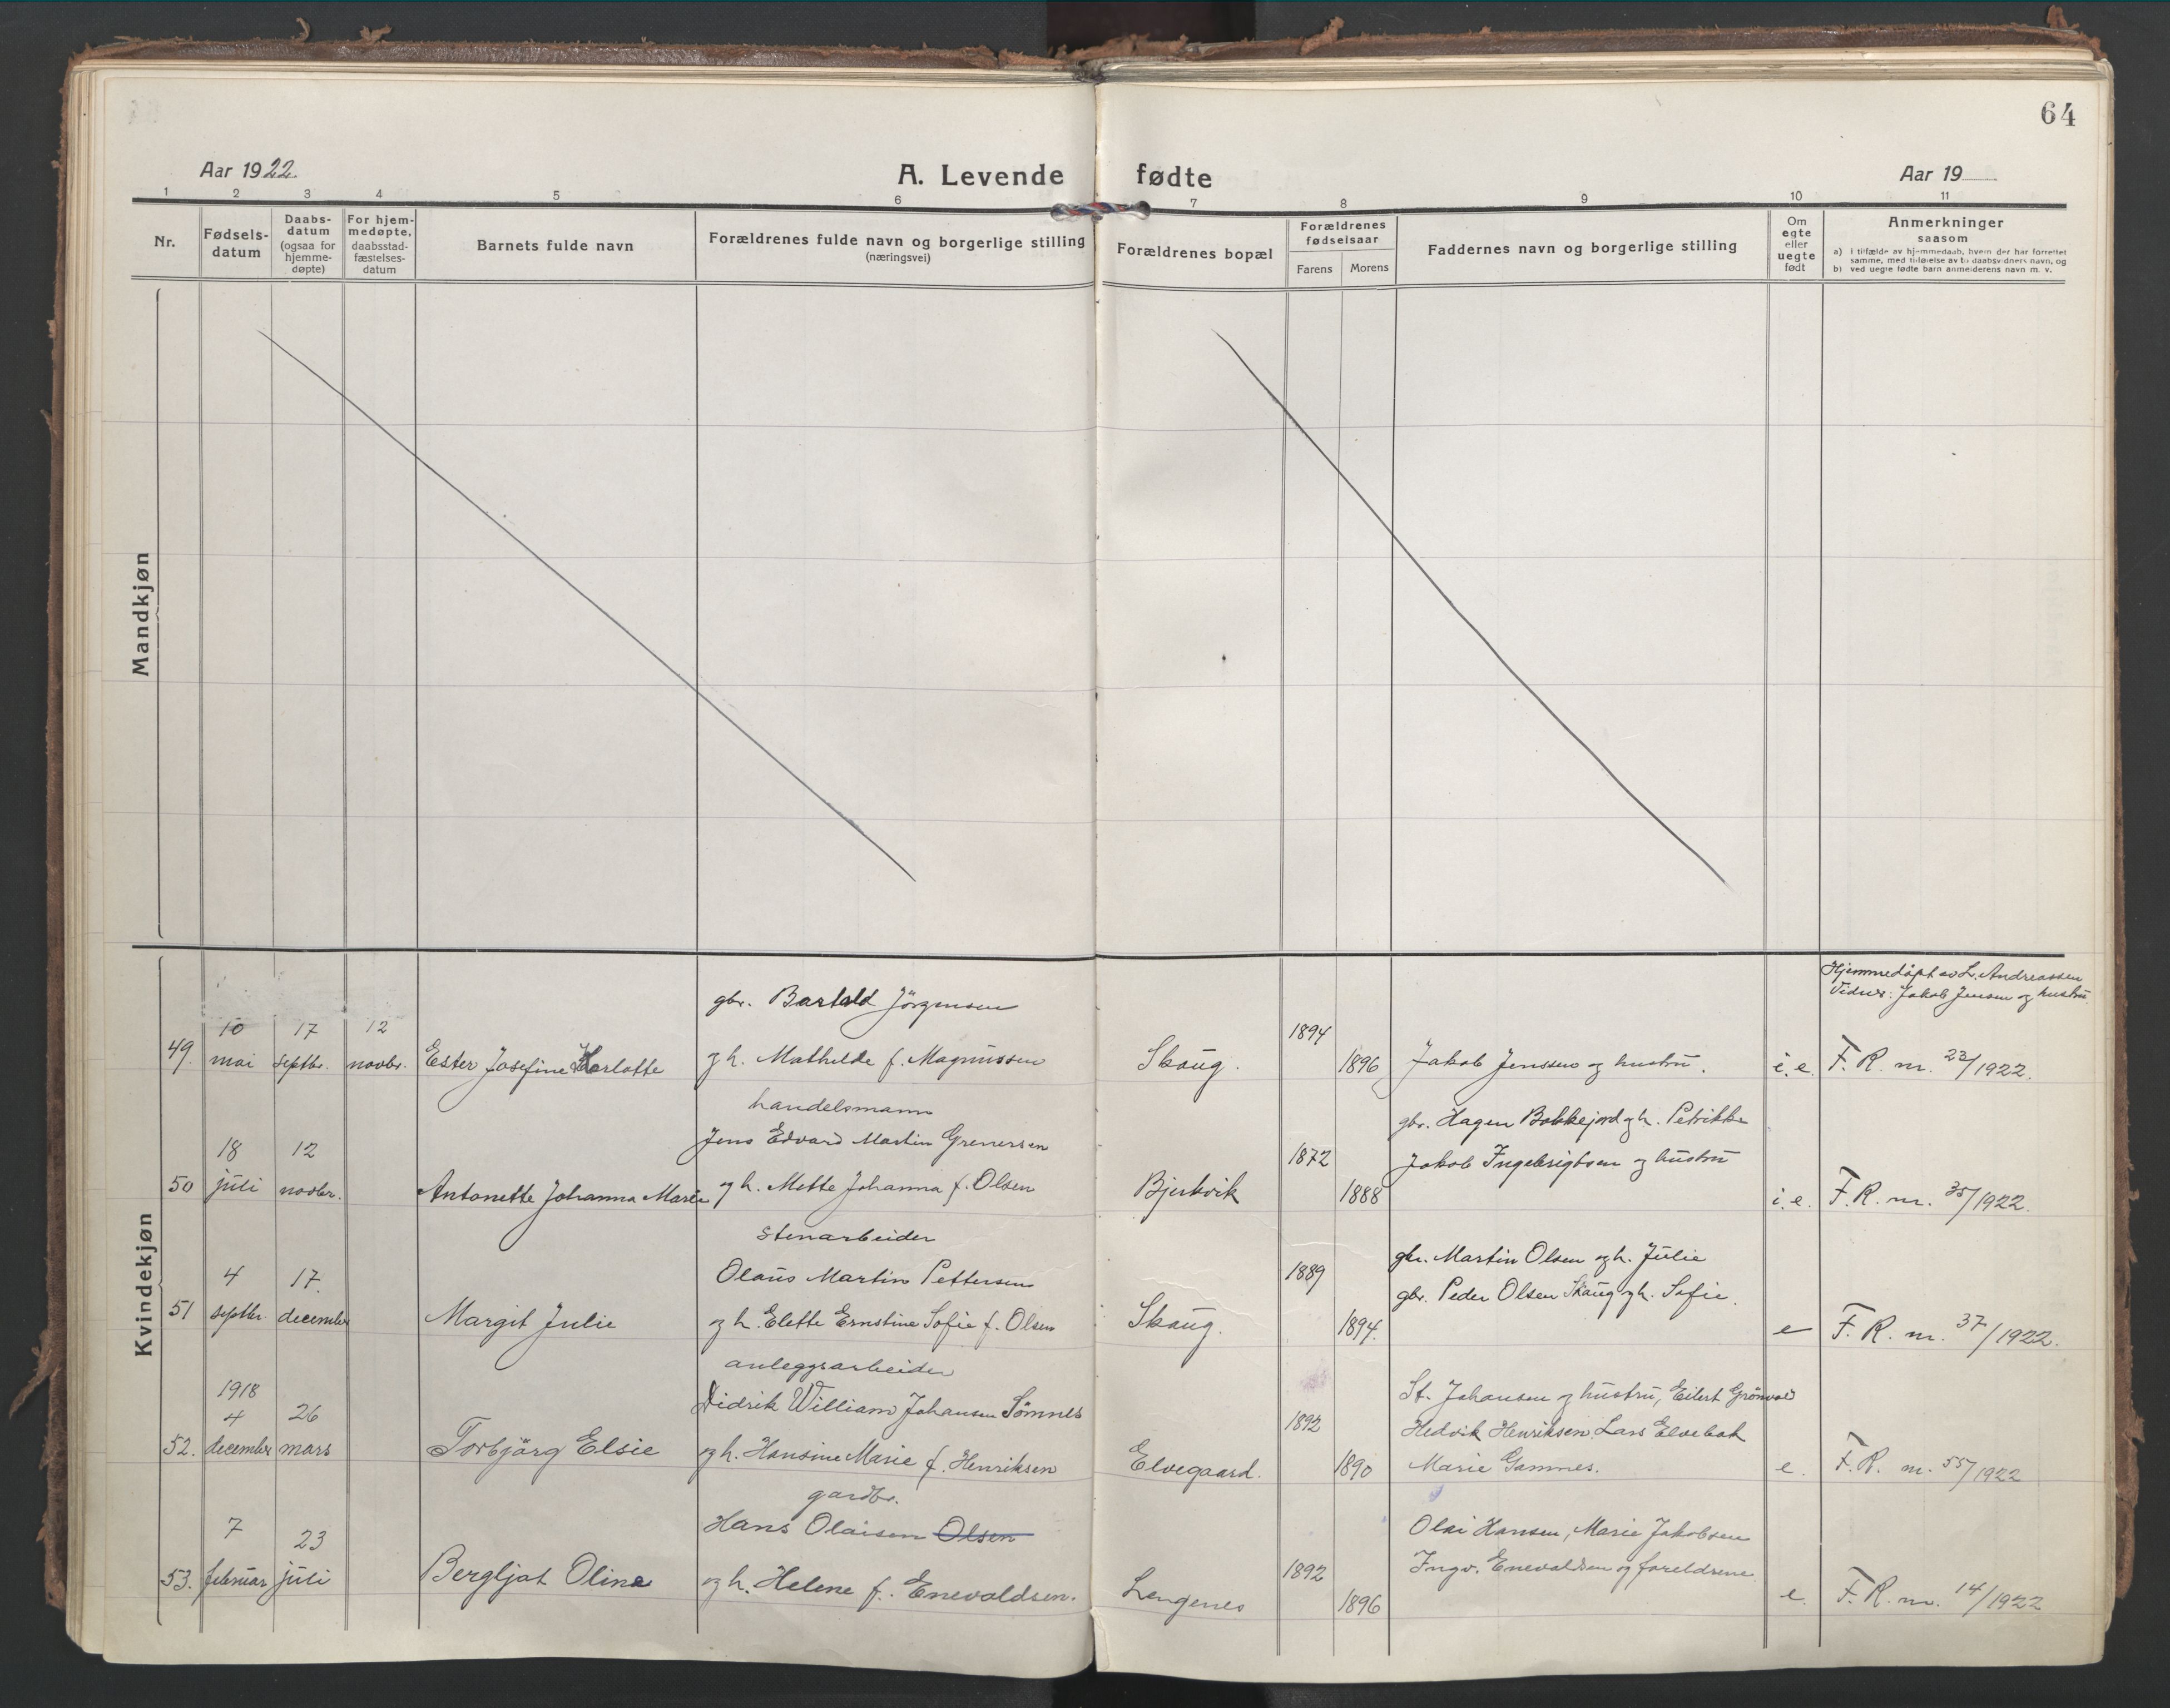 64
Aar 1922
A. Levende fødte
Aar 19
1 2 3 4 5 6 7 8 9 10 11
Nr.
Fødsels-
datum
Daabs-
datum
(ogsaa for
hjemme-
døpte)
For hjem-
medøpte,
daabsstad-
fæstelses-
datum
Barnets fulde navn
Forældrenes fulde navn og borgerlige stilling
(næringsvei)
Forældrenes bopæl
Forældrenes
fødselsaar
Farens Morens
Faddernes navn og borgerlige stilling
Om
egte
eller
uegte
født
Anmerkninger
saasom
a) i tilfælde av hjemmedaab, hvem der har forrettet
samme, med tilføielse av to daabsvidners navn, og
b) ved uegte fødte barn anmelderens navn m. v.
Mandkjøn
Kvindekjøn
Hjemmedöpt av L. Andreassen
Vidner: Jakob Jensen og hustru
gbr. Bartold Jörgensen
10 17 12 1894
49. mai septbr. novbr. Ester Josefine Karlotte og h. Mathilde f. Magnussen Skoug. 1896 Jakob Jenssen og hustru. i.e. F.R. nr. 23/1922.
handelsmann
gbr. Hagen Bokkejord og h. Petrikke
Jens Edvard Martin Grenersen
18 12 1872 Jakob Ingebrigtsen og hustru
50 juli novbr. Antonette Johanna Marie og h. Mette Johanna f. Olsen Bjerkvik 1888 i.e. F.R. nr. 35/1922.
stenarbeider
gbr. Martin Olsen og h. Julie
4 17. Olaus Martin Pettersen 1889 gbr. Peder Olsen Skaug og h. Sofie.
51 septbr. december Margit Julie og h. Elette Ernstine Sofie f. Olsen Skoug. 1894. e F.R. nr. 37/1922.
anleggsarbeider
1918
St. Johansen og hustru, Eilert Grönvold
4 26 Didrik William Johansen Sömnes 1892 Hedvik Henriksen, Lars Elvebak
52. december mars Torbjörg Elsie og h. Hansine Marie f. Henriksen Elvegaard. 1890 Marie Gamnes. e. F.R. nr. 55/1922
gardbr.
7 23 Hans Olaisen Olsen Olai Hansen, Marie Jakobsen
1892 Ingv. Enevaldsen og foreldrene
53. februar juli Bergljot Oline og h. Helene f. Enevoldsen. Lengenes 1896 e. F.R. nr. 14/1922